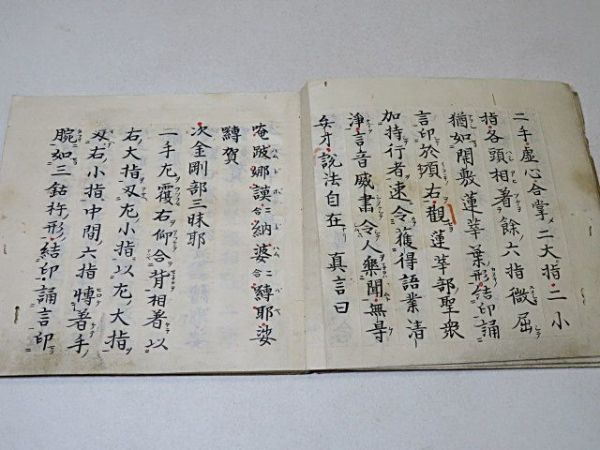 二手虚心合掌二大指二小
指各頭相著餘六指微屈
猶如開敷蓮華葉形結印誦
言印於頂右觀蓮華部聖衆
加持行者速令獲得語業清
淨言音威肅令人樂聞無㝵
弁才說法自在 真言曰
唵跛娜謨二合納婆二合嚩耶娑
嚩賀
次金剛部三昧耶
二手左覆右仰令背相著以
右大指叉左小指以左大指
叉右小指中間六指博著手
腕如三鈷杵形結印誦言印